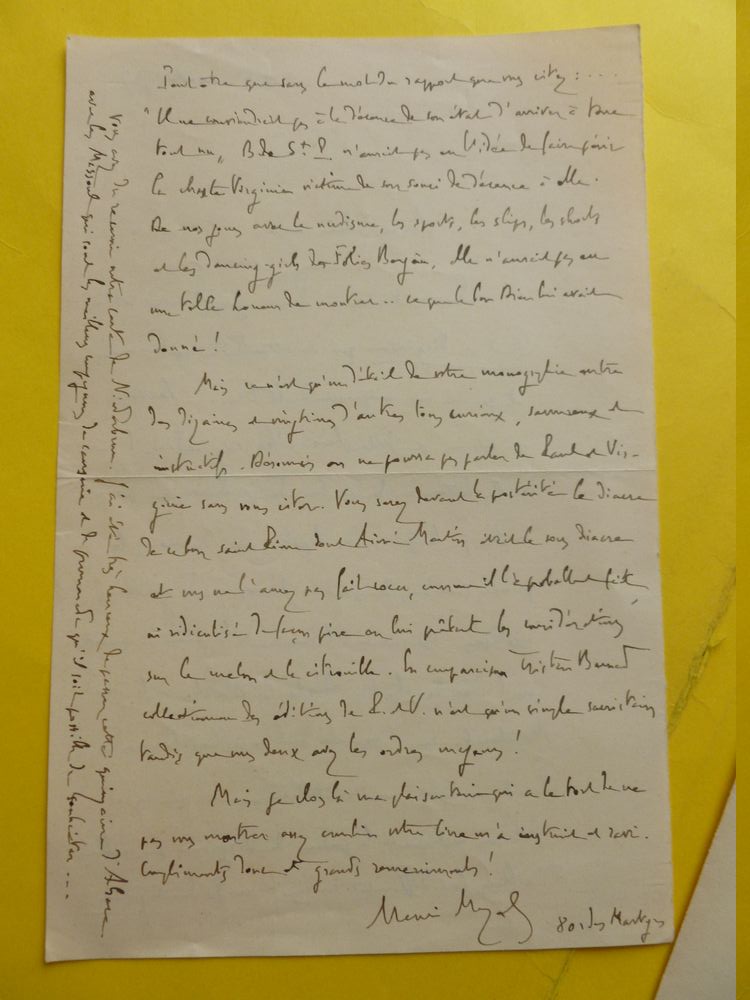 Peut-être que sans le mot du rapport que vous citez : ....
"Il ne convindrait pas à la décence de son état d'arriver à terre
tout nu, B de St P. n'aurait pas eu l'idée de faire périr
la chaste Virginie victime de son souci de décence à elle.
De nos jours avec le nudisme, les sports, les slips, les shorts
et les dancing-girls des Folies Bergère, elle n'aurait pas eu
une telle horreur de montrer .. ce que le bon Dieu lui avait
donné !
Mais ce n'est qu'un détail de votre monographie entre
des dizaines et vingtaines d'autres tous curieux, savoureux et
instructifs. Désormais on ne pourra pas parler de Paul et Vir-
ginie sans vous citer. Vous serez devant la postérité le diacre
de ce bon saint Pierre dont Aimé Martin était le sous diacre
et vous ne l'aurez pas fait cocu, comme il l'a probablement été,
ni ridiculisé de façon pire en lui prêtant les considérations
sur le melon et la citrouille. En comparaison Tristan Bernard
collectionneur des éditions de P. et V. n'est qu'un simple sacristain
tandis que vous deux avez les ordres majeurs !
Mais je clos là ma plaisanterie qui a le tort de ne
pas vous montrer assez combien votre livre m'a instruit et ravi.
Compliments donc et grands remerciements !
80 r des Martyrs
Vous avez du recevoir notre carte de Niederbronn. J'ai été très heureux de passer cette quinzaine d'Alsace
avec les Massoul qui sont les meilleurs compagnons de campagne et de promenade qu'il soit possible de souhaiter ...